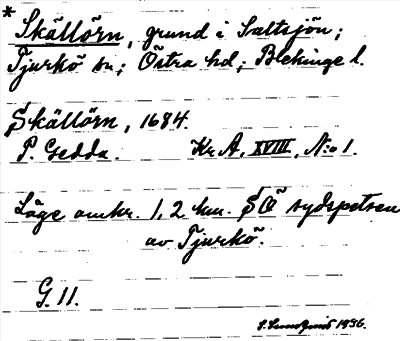 * Skällörn, grund i Saltsjön;
Tjurkö sn; Östra hd; Blekinge l.
Skällörn, 1684.
P. Gedda. Kr A, XVIII, N:o 1.
Läge omkr. 1,2 km. SO sydspetsen
av Tjurkö.
G. 11.
S. Lundqvist 1936.